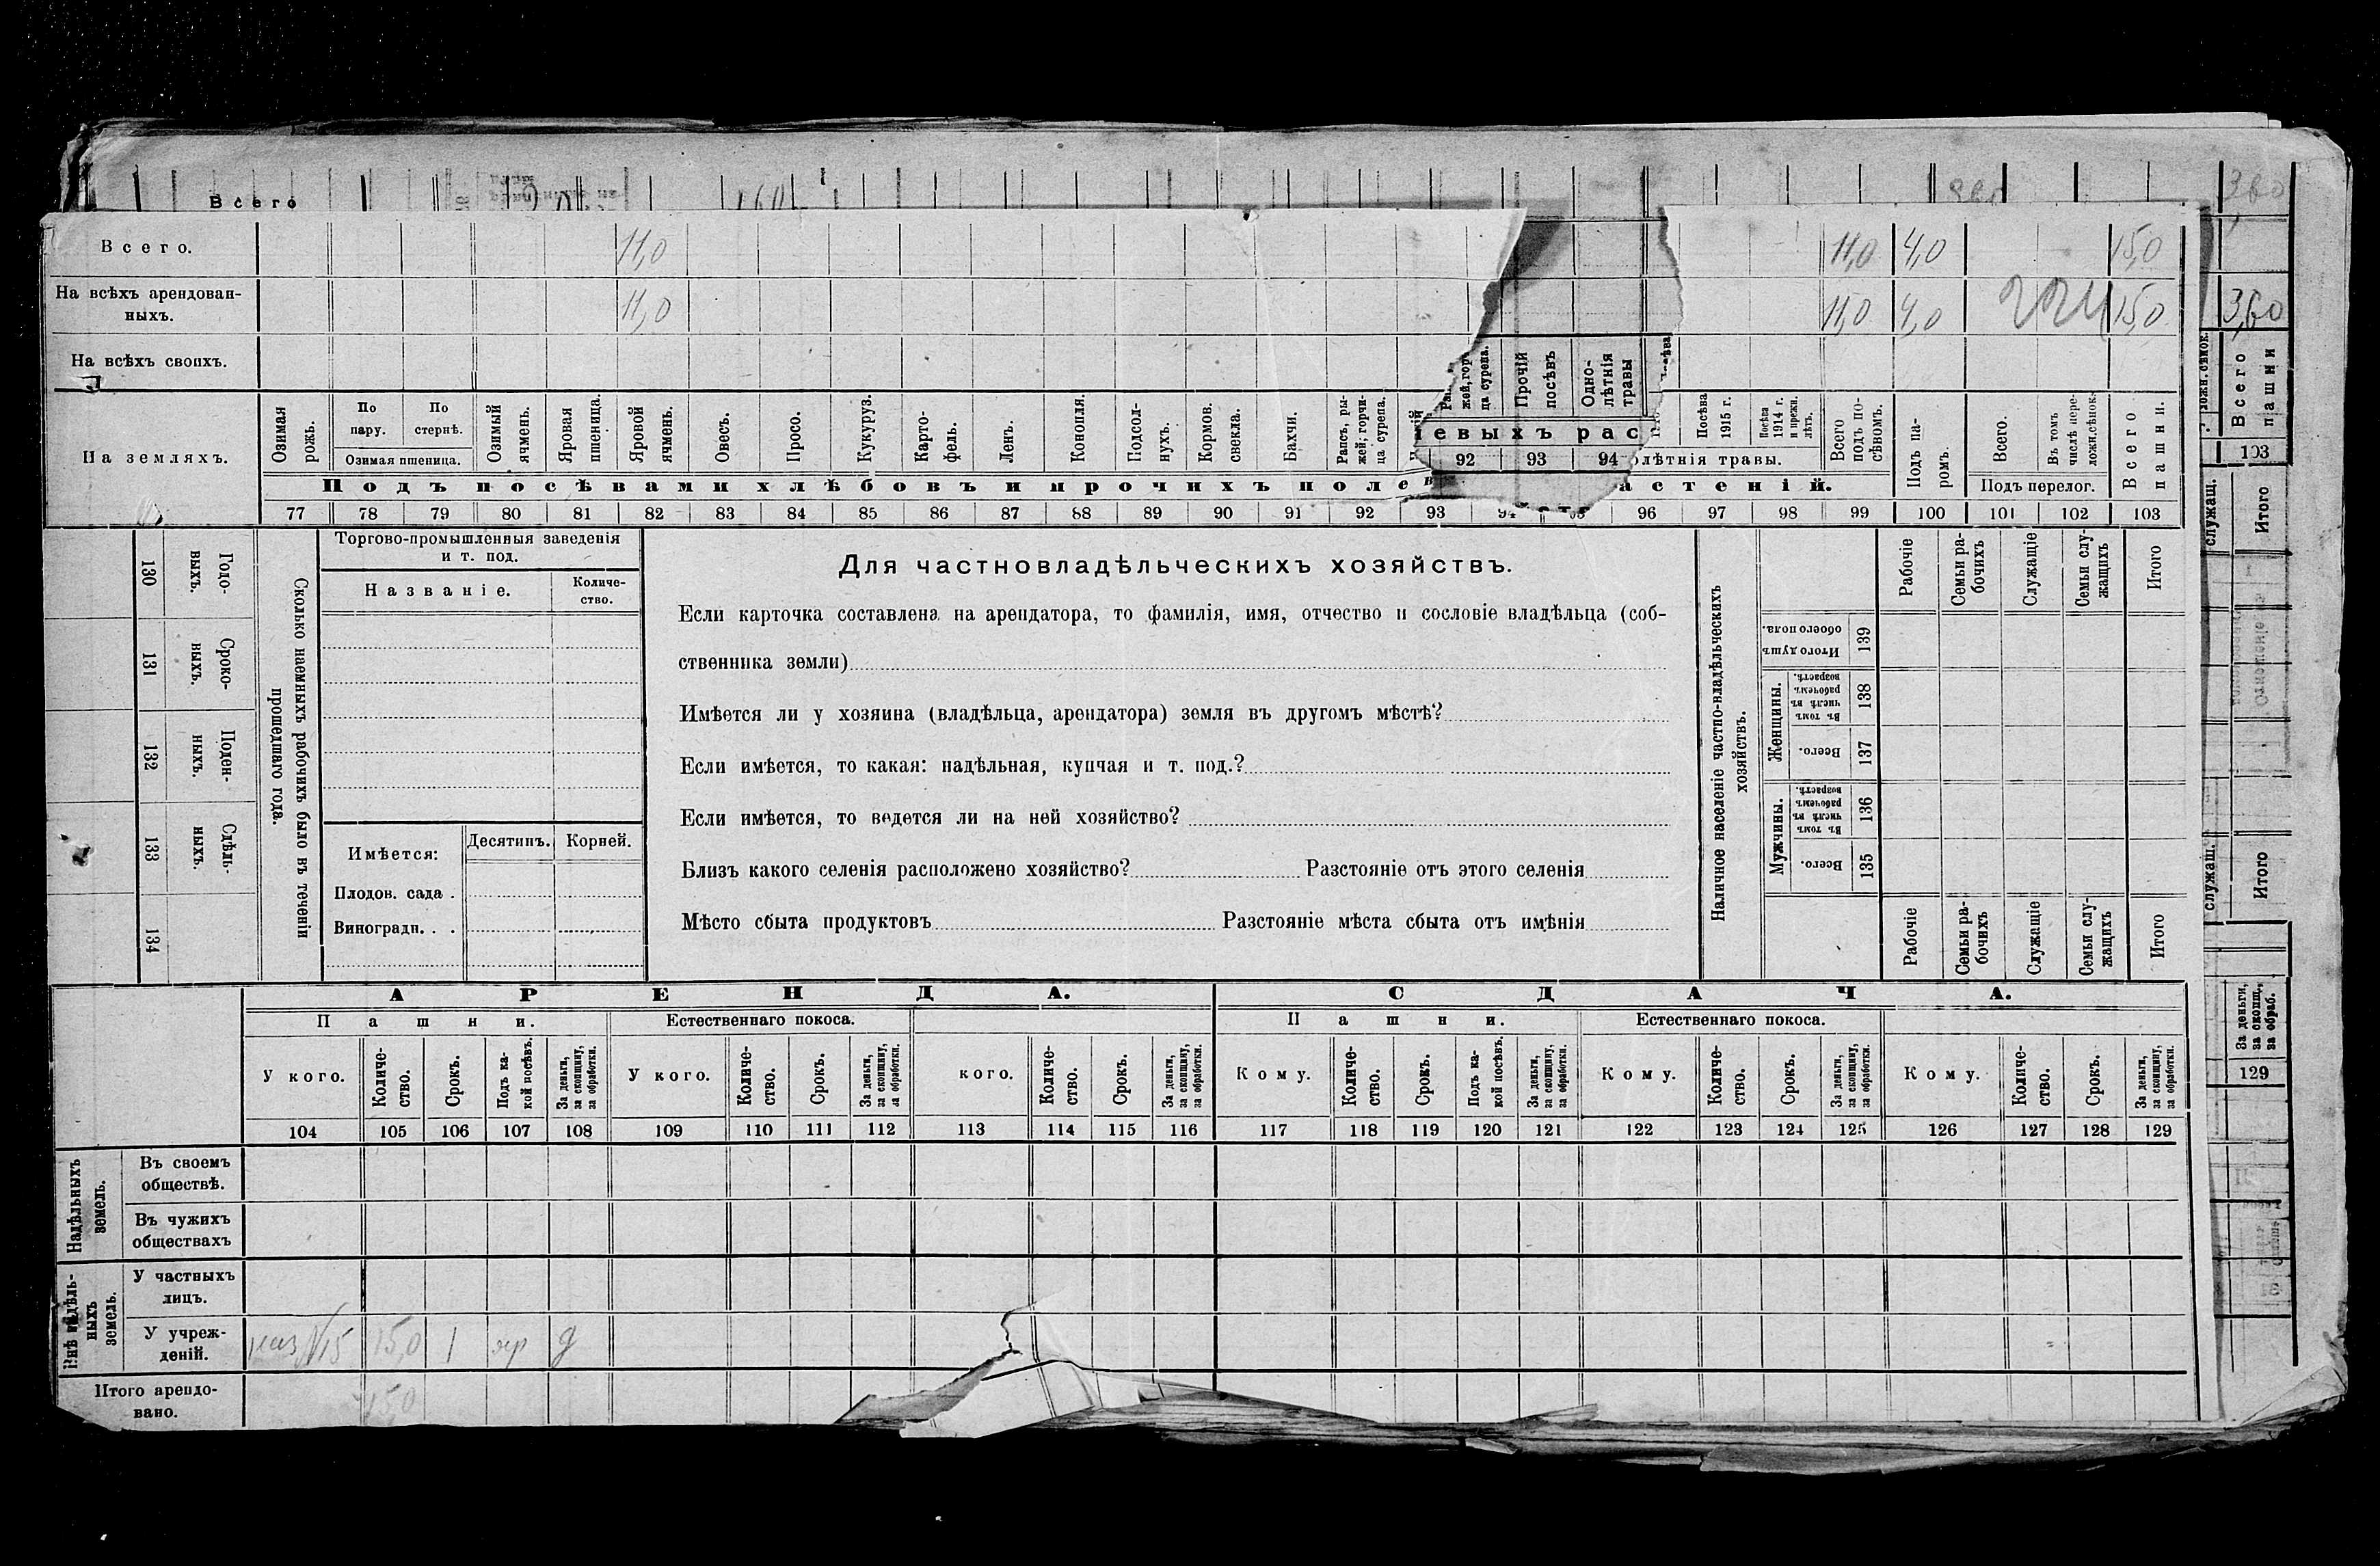 Всего
3,60
Всего. 11,0 11,0 4,0 15,0
На всѣхъ арендован-
ныхъ. 11,0 11,0 4,0 15,0 3,60
На всѣхъ своихъ.
На земляхъ.
Озимая рожь.
По пару.
По стернѣ.
Озимая пшеница.
Озимый ячмень.
Яровая пшеница.
Яровой ячмень.
Овесъ.
Просо.
Кукуруз.
Карто-
фель.
Ленъ.
Конопля.
Подсол-
нухъ.
Кормов. свекла.
Бахчи.
Рапсъ, ры-
жей; горчи-
ца сурепа.
жей, гор
ца сурепа.
Прочій посѣвъ
Одно-
лѣтнія травы
евыхъ рас
92 93 94
Посѣва 1915 г.
Посѣва 1914 г. и прежн. лѣтъ.
олѣтнія травы.
Всего подъ по-
сѣвомъ.
Подъ па-
ромъ.
Всего.
Въ томъ числѣ пере-
ложн.сѣнок.
Подъ перелог.
Всего пашни.
Всего пашни
103
Подъ посѣвами хлѣбовъ и прочихъ полев
астеній.
77 78 79 80 81 82 83 84 85 86 87 88 89 90 91 92 93 94 95 96 97 98 99 100 101 102 103
Годо-
выхъ.
130
Сроко-
ныхъ.
131
Поден-
ныхъ.
132
Сдѣль-
ныхъ.
133
134
Сколько наемныхъ рабочихъ было въ теченіи
прошедшаго года.
Торгово-промышленныя заведенія
и т. под.
Названіе.
Количе-
ство.
Имѣется:
Десятинъ.
Корней.
Плодов. сада .
Виноградн. . .
Для частновладѣльческихъ хозяйствъ.
Если карточка составлена на арендатора, то фамилія, имя, отчество и сословіе владѣльца (соб-
ственника земли)
Имѣется ли у хозяина (владѣльца, арендатора) земля въ другомъ мѣстѣ?
Если имѣется, то какая: надѣльная, купчая и т. под.?
Если имѣется, то ведется ли на ней хозяйство?
Близъ какого селенія расположено хозяйство? Разстояніе отъ этого селенія
Мѣсто сбыта продуктовъ Разстояніе мѣста сбыта отъ имѣнія
Наличное населеніе частно-владѣльческихъ
хозяйствъ.
Рабочіе
Семьи ра-
бочихъ
Служащіе
Семьи слу-
жащихъ
Итого
Итого душъ обоего пола.
139
Женщины.
Въ томъ числѣ въ рабочемъ возрастѣ.
138
Всего.
137
Мужчины.
Въ томъ числѣ въ рабочемъ возрастѣ.
136
Всего.
135
Рабочіе
Семьи ра-
бочихъ
Служащіе
Семьи слу-
жащихъ
Итого
служащ.
Итого
служащ.
Итого
АРЕНДА.
СДАЧА.
Пашни.
Естественнаго покоса.
Пашни.
Естественнаго покоса.
У кого.
Количе-
ство.
Срокъ.
Подъ ка-
кой посѣвъ.
За деньги,
за скопщину,
за обработки.
У кого.
Количе-
ство.
Срокъ.
За деньги,
за скопщину,
за обработки.
кого.
Количе-
ство.
Срокъ.
За деньги,
за скопщину,
за обработки.
Кому.
Количе-
ство.
Срокъ.
Подъ ка-
кой посѣвъ.
За деньги,
за скопщину,
за обработки.
Кому.
Количе-
ство.
Срокъ.
За деньги,
за скопщину,
за обработки.
Кому.
Количе-
ство.
Срокъ.
За деньги,
за скопщину,
за обработки.
За деньги,
за скопщ.,
за обраб.
129
104 105 106 107 108 109 110 111 112 113 114 115 116 117 118 119 120 121 122 123 124 125 126 127 128 129
Надѣльныхъ
земель.
Въ своемъ
обществѣ.
Въ чужихъ
обществахъ
Внѣ надѣль-
ныхъ
земель.
У частныхъ
лицъ.
У учреж-
деній. каз №15 15,0 1 яр д
Итого арендо-
вано. 15,0